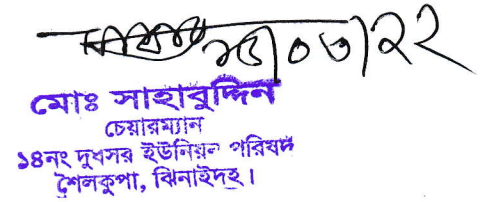 ০৩/২২
মোঃ সাহাবুদ্দিন
চেয়ারম্যান
১৪নং দুধসর ইউনিয়ন পরিষদ
শৈলকুপা, ঝিনাইদহ।